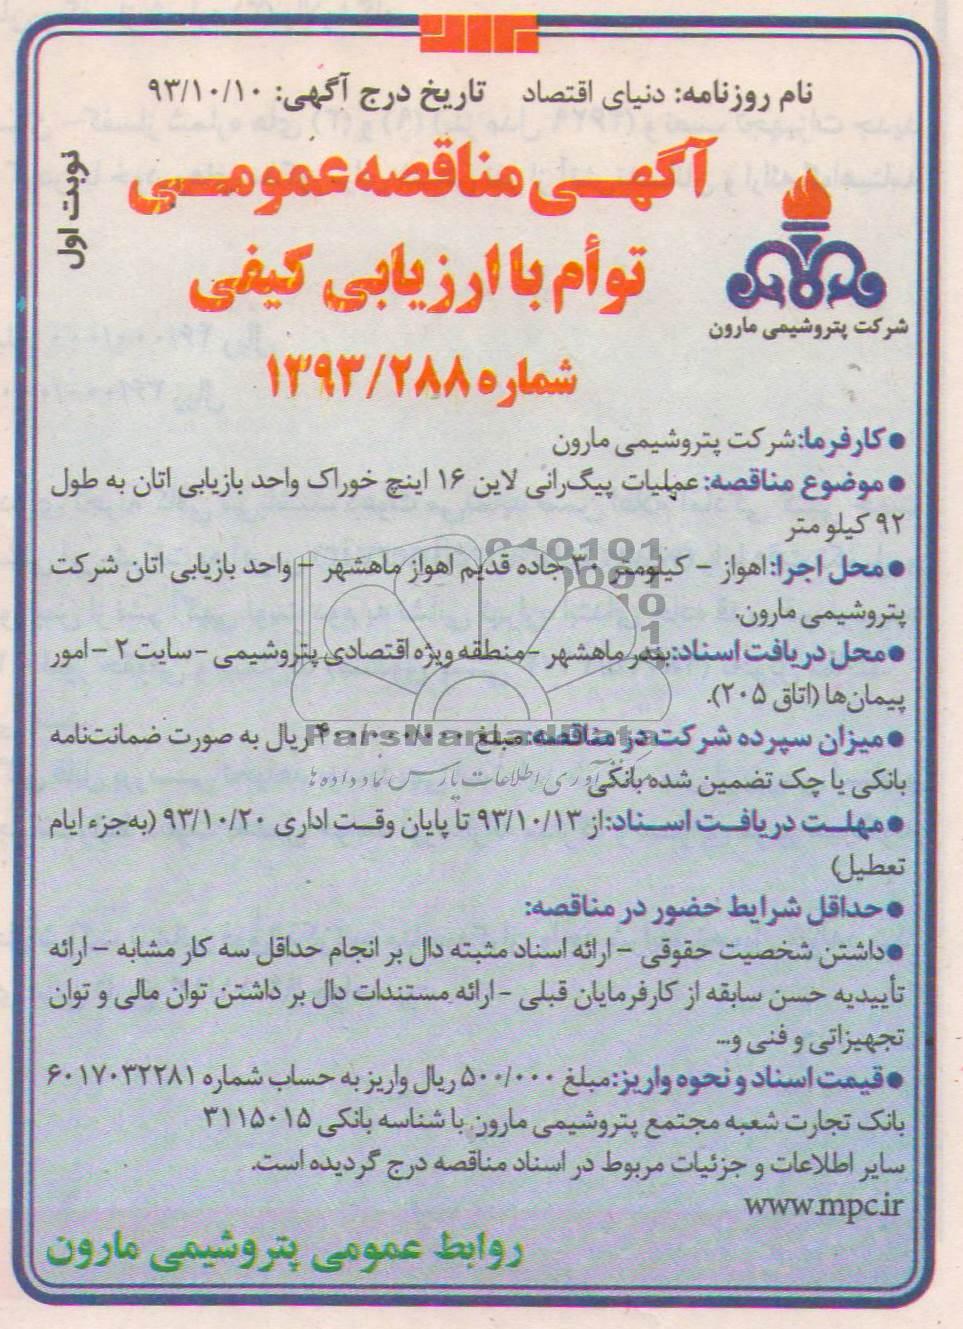 نام روزنامه: دنیای اقتصاد تاریخ درج آگهی: ۹۳/۱۰/۱۰
نوبت اول
آگهی مناقصه عمومی
توأم با ارزیابی کیفی
شماره ۱۳۹۳/۲۸۸
شرکت پتروشیمی مارون
●کارفرما:شرکت پتروشیمی مارون
●موضوع مناقصه: عملیات پیگ‌رانی لاین ۱۶ اینچ خوراک واحد بازیابی اتان به طول
۹۲ کیلو متر
●محل اجرا:اهواز – کیلومتر ۳۰ جاده قدیم اهواز ماهشهر – واحد بازیابی اتان شرکت
پتروشیمی مارون.
●محل دریافت اسناد:بندر ماهشهر -منطقه ویژه اقتصادی پتروشیمی -سایت ۲ - امور
پیمان‌ها (اتاق ۲۰۵).
●میزان سپرده شرکت در مناقصه:مبلغ ۴۰۰/۰۰۰/۰۰۰ ریال به صورت ضمانت‌نامه
بانکی یا چک تضمین شده بانکی
●مهلت دریافت اسناد:از ۹۳/۱۰/۱۳ تا پایان وقت اداری ۹۳/۱۰/۲۰ (به‌جزء ایام
تعطیل)
●حداقل شرایط حضور در مناقصه:
●داشتن شخصیت حقوقی – ارائه اسناد مثبته دال بر انجام حداقل سه کار مشابه – ارائه
تأییدیه حسن سابقه از کارفرمایان قبلی – ارائه مستندات دال بر داشتن توان مالی و توان
تجهیزاتی و فنی و...
●قیمت اسناد و نحوه واریز:مبلغ ۵۰۰/۰۰۰ ریال واریز به حساب شماره ۶۰۱۷۰۳۲۲۸۱
بانک تجارت شعبه مجتمع پتروشیمی مارون با شناسه بانکی ۳۱۱۵۰۱۵
سایر اطلاعات و جزئیات مربوط در اسناد مناقصه درج گردیده است.
www.mpc.ir
روابط عمومی پتروشیمی مارون
ParsNamadData